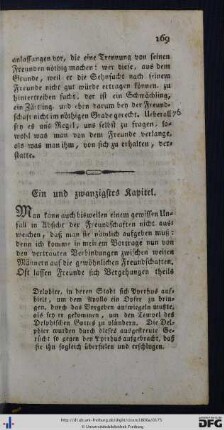 169
anlassungen vor, die eine Trennung von seinen
Freunden nöthig machen! wer diese, aus dem
Grunde, weil er die Sehnsucht nach seinem
Freunde nicht gut würde ertragen können, zu
hintertreiben sucht, der ist ein Schwächling,
ein Zärtling, und eben darum bey der Freund-
schaft nicht im nöthigen Grade gerecht. Ueberall
sey es uns Regel, uns selbst zu fragen, so-
wohl was man von dem Freunde verlange,
als was man ihm, von sich zu erhalten, ver-
statte.
Ein und zwanzigstes Kapitel.
Man kann auch bisweilen einem gewissen Un-
fall in Absicht der Freundschaften nicht aus-
weichen, daß man sie nämlich aufgeben muß:
denn ich komme in meinem Vortrage nun von
den vertrauten Verbindungen zwischen weisen
Männern auf die gewöhnlichen Freundschaften.
Oft lassen Freunde sich Vergehungen theils
Delphier, in deren Stadt sich Pyrrhus auf-
hielt, um dem Apollo ein Opfer zu brin-
gen, durch das Vorgeben aufwiegeln mußte,
als sey er gekommen, um den Tempel des
Delphischen Gottes zu plündern. Die Del-
phier wurden durch dieses ausgestreute Ge-
rücht so gegen den Pyrrhus aufgebracht, daß
sie ihn sogleich überfielen und erschlugen.